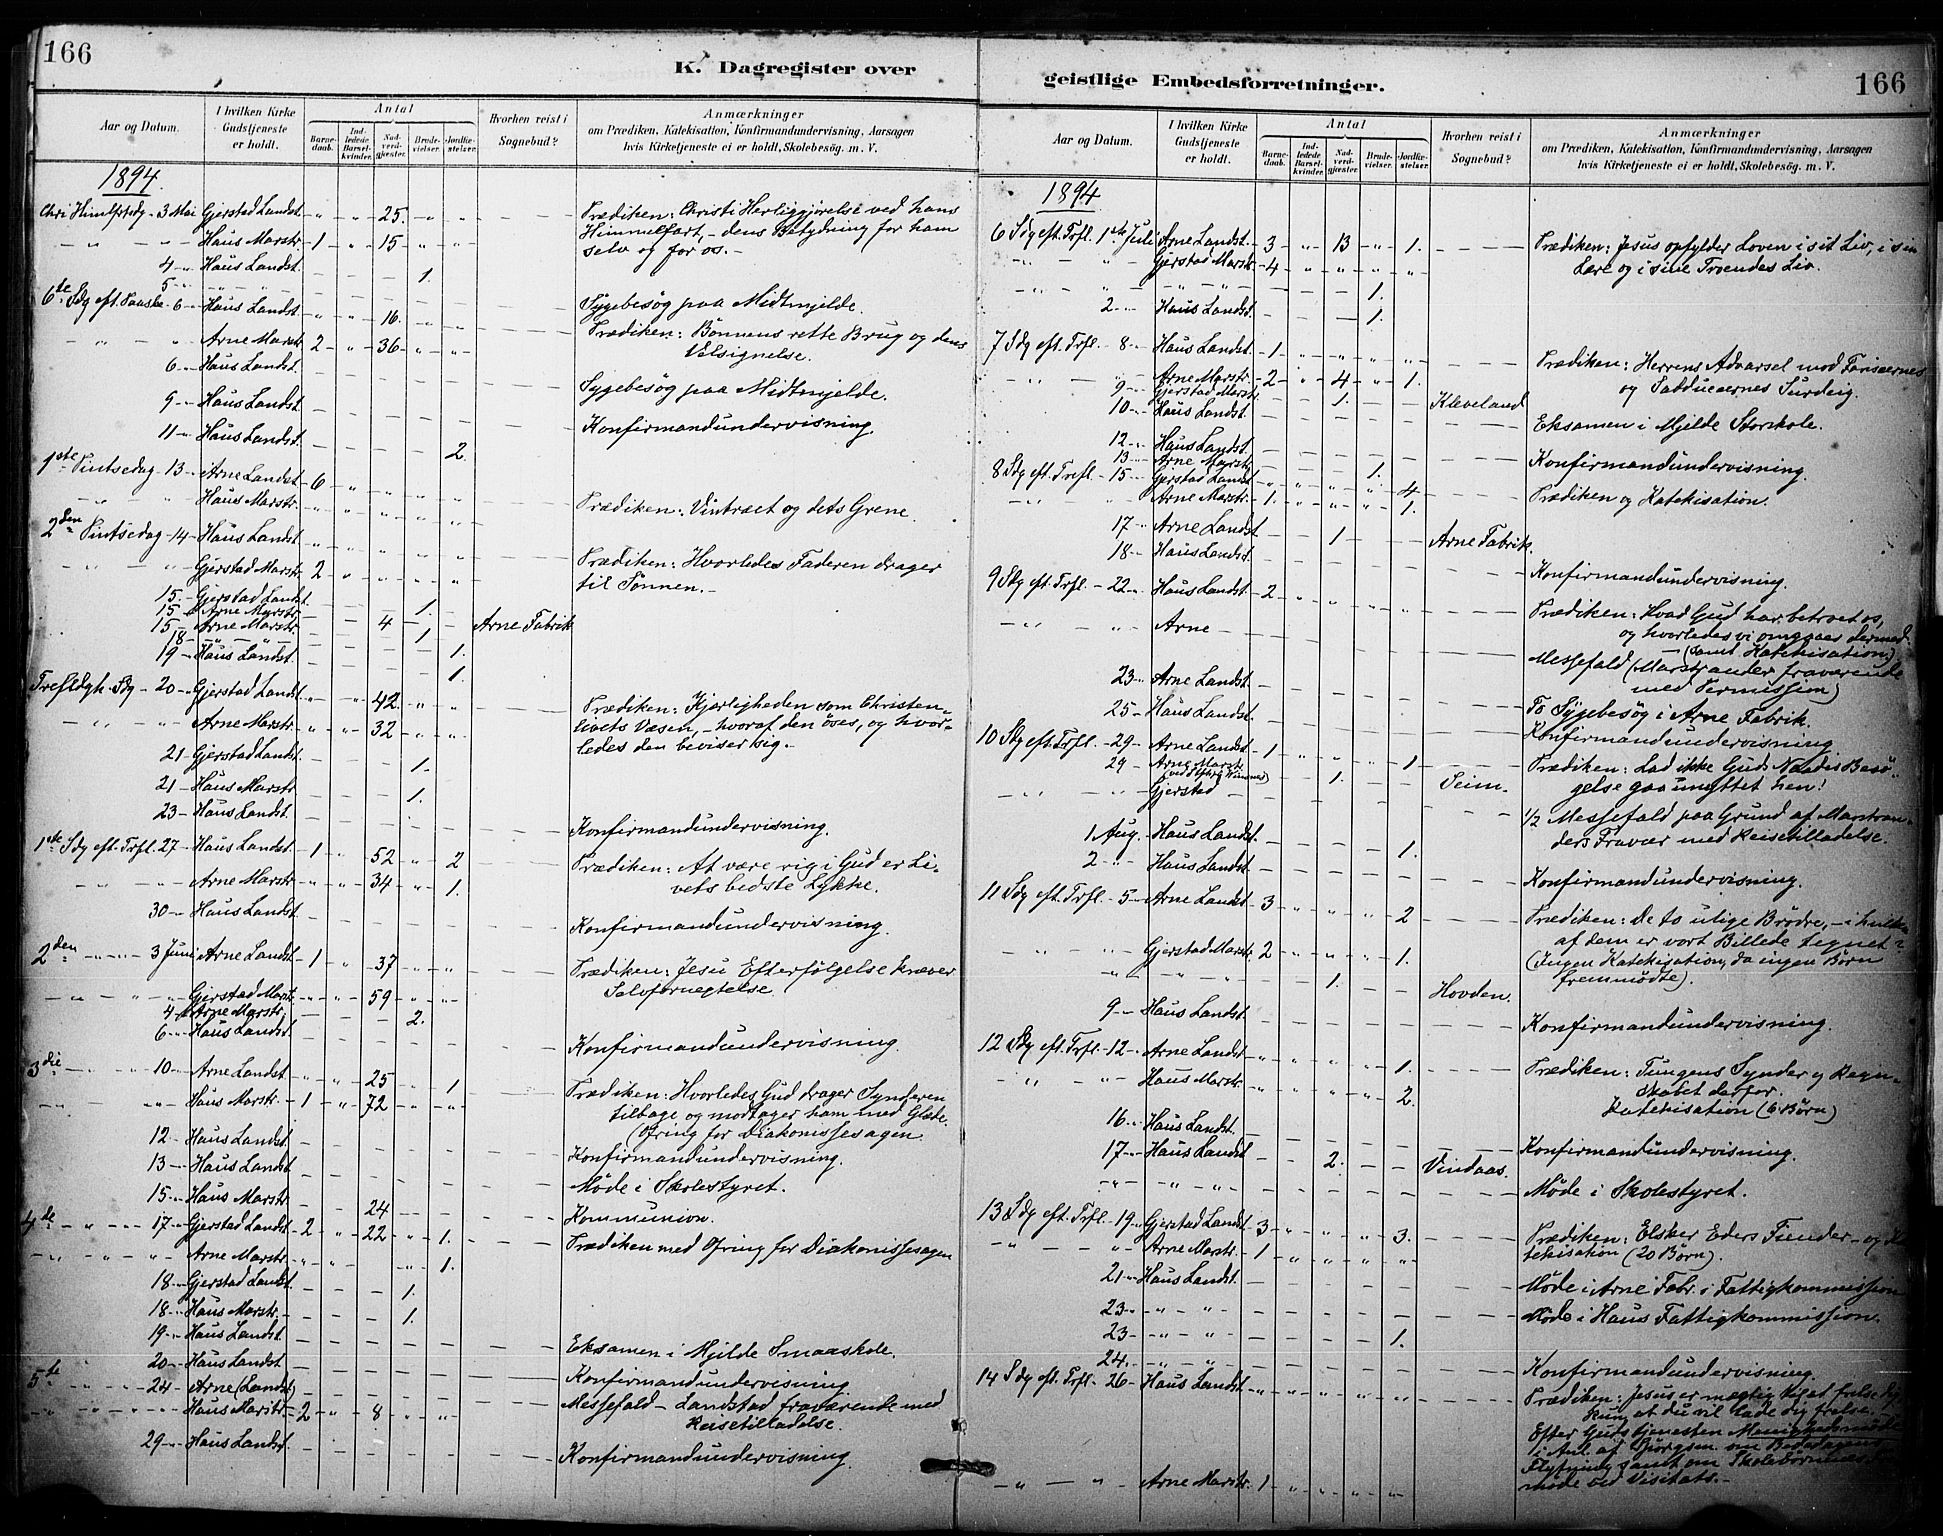 166
K. Dagregister over
Aar og Datum.
I hvilken Kirke Gudstjeneste er holdt.
Antal
Barne-daab.
Ind-ledede Barsel-kvinder.
Nad-verd-gjester.
Brude-vielser.
Jordfæ-stelser.
Hvorhen reist i Sognebud?
Anmærkninger
om Prædiken, Katekisation, Konfirmandundervisning, Aarsagen
hvis Kirketjeneste ei er holdt, Skolebesøg. m. V.
1894.
Chri Himlfrtsdg - 3 Mai Gjerstad Landst. " " 25. " " Prædiken: Christi Herliggjørelse ved hans
" " Haus Marstr. 1 " 15 " " Himmelfart, - dens Betydning for ham
selv og for os. -
4 " Haus Landst. - - - 1.
5 " " "
6te Sdg eft. Paaske - 6 " Haus Landst. " " 16. " " Sygebesøg paa Midtmjelde.
Prædiken: Bønnens rette Brug og dens
" " Arne Marstr. 2 " 36 " " Velsignelse.
6 " Haus Landst. Sygebesøg paa Midtmjelde.
9 " Haus Landst. Konfirmandundervisning.
11 " Haus Landst. - - - - 2.
1ste Pintsedag - 13 " Arne Landst. 6 " " " "
" " Haus Marstr. " " " " " Prædiken: Vintræet og dets Grene.
2den Pintsedag - 14 " Haus Landst. " " " " " Prædiken: Hvorledes Faderen drager
" " Gjerstad Marstr. 2 " " " " til Sønnen. -
15. Gjerstad Landst. - - - 1.
15 Arne Marstr. - - 4 - - Arne Fabrik
15 - Arne Marstr. - - - 1.
18 - " - " - - - - 1.
19 " Haus Landst. - - - - 1.
Trefldgh. Sdg - 20 " Gjerstad Landst. " " 42. " " Prædiken: Kjærligheden som Christen-
" " Arne Marstr. " " 32 " " livets Væsen, - hvoraf den øves, og hvor-
ledes den beviser sig. -
21 - Gjerstad Landst. - - - 1.
21 - Haus Marstr. - - - 1.
23 - Haus Landst. Konfirmandundervisning.
1ste Sdg eft. Trfl. 27 - Haus Landst. 1 " 52 " 2 Prædiken: At være rig i Gud er Li-
" " Arne Marstr. " " 34 " 1. vets bedste Lykke.
30 - Haus Landst. Konfirmandundervisning.
2den " " 3 Juni Arne Landst. 1 " 37 " " Prædiken: Jesu Efterfølgelse kræver
Selvfornegtelse.
" " Gjerstad Marst. " " 59 " "
4 - Arne Marstr. - - - 2.
6 " Haus Landst. Konfirmandundervisning.
3die " " 10 - Arne Landst. " " 25 " 1 Prædiken: Hvorledes Gud drager Synderen
" " Haus Marstr. 1 " 72 " " tilbage og modtager ham med Glæde.
(Ofring for Diakonissesagen.
12 - Haus Landst. Konfirmandundervisning.
13 - Haus Landst. Møde i Skolestyret.
15 - Haus Marstr. - - 24 - - Kommunion.
4de " " 17 - Gjerstad Landst. 2 " 22 " 1. Prædiken med Ofring for Diakonissesagen
" " Arne Marstr. " " " 1.
18 - Gjerstad Landst. - - - 1.
18 - Haus Marstr. - - - 1.
19 - Haus Landst. Eksamen i Mjelde Smaaskole.
20 - Haus Landst. Konfirmandundervisning
5te " " 24 - Arne (Landst) Messefald - Landstad fraværende med
" " Haus Marstr. 2 " 8 " " Reisetilladelse.
29 - Haus Landst. Konfirmandundervisning.
geistlige Embedsforretninger.
166
Aar og Datum.
I hvilken Kirke Gudstjeneste er holdt.
Antal
Barne-daab.
Ind-ledede Barsel-kvinder.
Nad-verd-gjester.
Brude-vielser.
Jordfæ-stelser.
Hvorhen reist i Sognebud?
Anmærkninger
om Prædiken, Katekisation, Konfirmandundervisning, Aarsagen
hvis Kirketjeneste ei er holdt, Skolebesøg. m. V.
1894
6 Sdg eft. Trfl. 1ste Juli Arne Landst. 3 " 13 " 1. Prædiken: Jesus opfylder Loven i sit Liv, i sin
" " Gjerstad Marstr. 4 " " " " Lære og i sine Troendes Liv.
" " - " - " - - - - 1.
2 " Haus Landst. - - - 1.
7 Sdg eft. Trfl. - 8 " Haus Landst. 1 " " " " Prædiken: Herrens Advarsel mod Farisæernes
" " Arne Marstr. 2 " 4 " 1. og Sadducæernes Surdeig.
9 - Gjerstad Marstr. - - 1. - - Kleveland
10 - Haus Landst. Eksamen i Mjelde Storskole.
12 - Haus Landst. Konfirmandundervisning.
13 - Arne Marstr. - - - 1.
8 Sdg eft. Trefl. - 15 - Gjerstad Landst. " " " " 4. Prædiken og Katekisation.
" " Arne Marstr. 1. " " " 1.
17 - Arne Landst. - - 1 - - Arne Fabrik.
18 - Haus Landst. Konfirmandundervisning.
9 Sdg eft. Trfl. - 22 " Haus Landst. 2 " " " " Prædiken: Hvad Gud har betroet os,
og hvorledes vi omgaaes dermed.
- (samt Katekisation)
" " Arne - Messefald (Marstrander fraværende
med Permission)
23 - Arne Landst. To Sygebesøg i Arne Fabrik.
25 - Haus Landst. Konfirmandundervisning
10 Sdg eft. Trfl. - 29 - Arne Landst. 1 " " " 1. Prædiken: Lad ikke Guds Naades Besø-
29 - Arne Marstr. - - 1. - - Seim. gelse gaa unyttet hen!
" " Gjerstad - 1/2 Messefald paa Grund af Marstran-
ders Fravær med Reisetilladelse.
1 Aug. Haus Landst. - - - - 1.
2 - Haus Landst. Konfirmandundervisning.
11 Sdg eft. Trfl. - 5 - Arne Landst. 3 " " " 2 Prædiken: De to ulige Brødre, - i hvilken
af dem er vort Billede tegnet?
" " Gjerstad Marstr. 2 " " " 1. (Ingen Katekisation, da ingen Børn
fremmødte).
" - " - " - - 1. - - Hovden.
9 - Haus Landst. Konfirmandundervisning.
12 Sdg eft. Trfl. - 12 - Arne Landst. " " " " 1. Prædiken: Tungens Synder og Regn-
" " Haus Marstr. " " " " 2. skabet derfor.
Katekisation (6 Børn)
16 - Haus Landst. Konfirmandundervisning.
17 - Haus Landst. - - 2. - - Vindaas.
" - " - " Møde i Skolestyret.
13 Sdg eft. Trfl. - 19 - Gjerstad Landst. 3 " " " 3. Prædiken: Elsker Eders Fiender - og Ka-
" " Arne Marstr. 1 " " " " tekisation (20 Børn).
21 - Haus Landst. Møde i Arne Fabr. i Fattigkommission
23 - " - " Møde i Haus Fattigkommission.
23 - " - " - - - - 1.
24 - " " Konfirmandundervisning.
14 Sdg eft. Trfl. - 26 - Haus Landst. " " " " " Prædiken: Jesus er mægtig til at frelse dig,
kun at du vil lade dig frelse.
Efter Gudstjenesten Menighedsmøde
i Anl. af om Bededagens
Flytning samt om Skolebørnenes
møde ved Visitats. -
" - " Arne Marstr. 1 " " " "